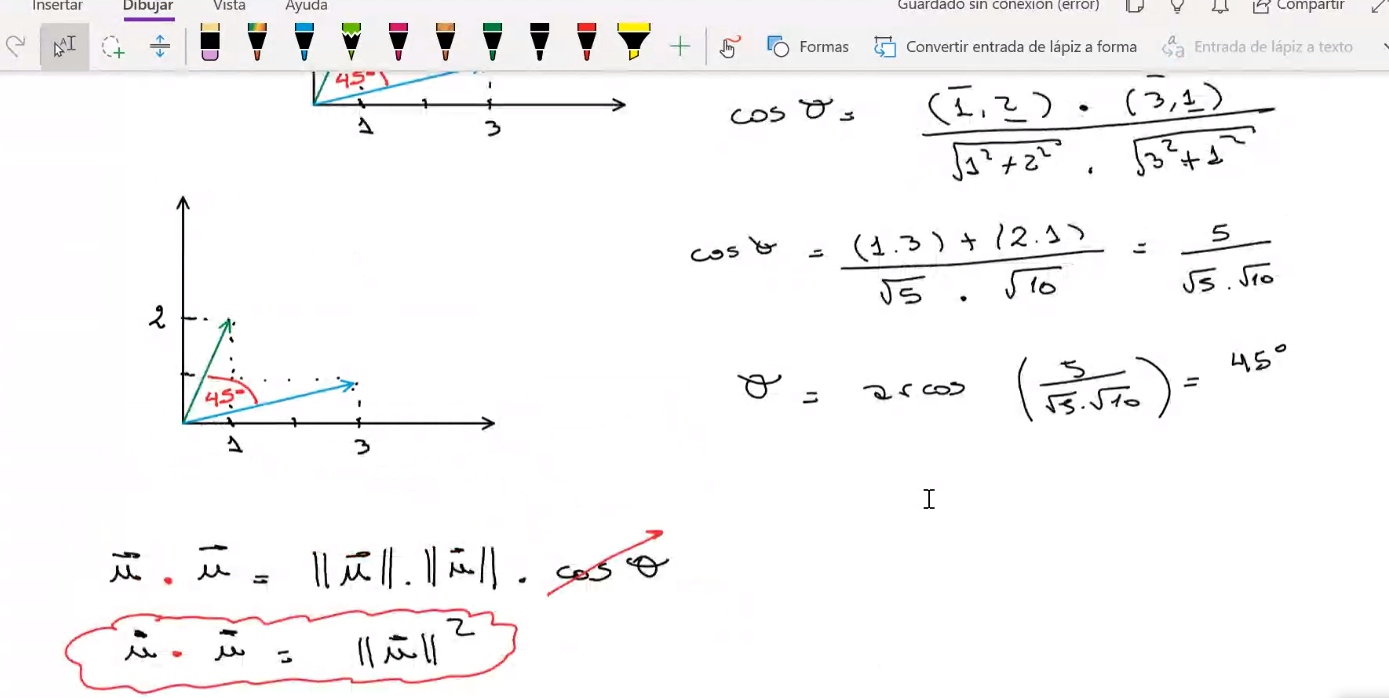 Insertar Dibujar Vista Ayuda Guardado sin conexión (error) Compartir
Formas Convertir entrada de lápiz a forma Entrada de lápiz a texto
45°
1 3
cos θ = (1, 2) · (3, 1) / √1² + 2² · √3² + 1²
cos θ = (1.3) + (2.1) / √5 · √10 = 5 / √5 . √10
θ = arcos (5 / √5 . √10) = 45°
2
45°
1 3
u⃗ · u⃗ = ||u⃗|| . ||u⃗|| . cos θ
u⃗ · u⃗ = ||u⃗||²